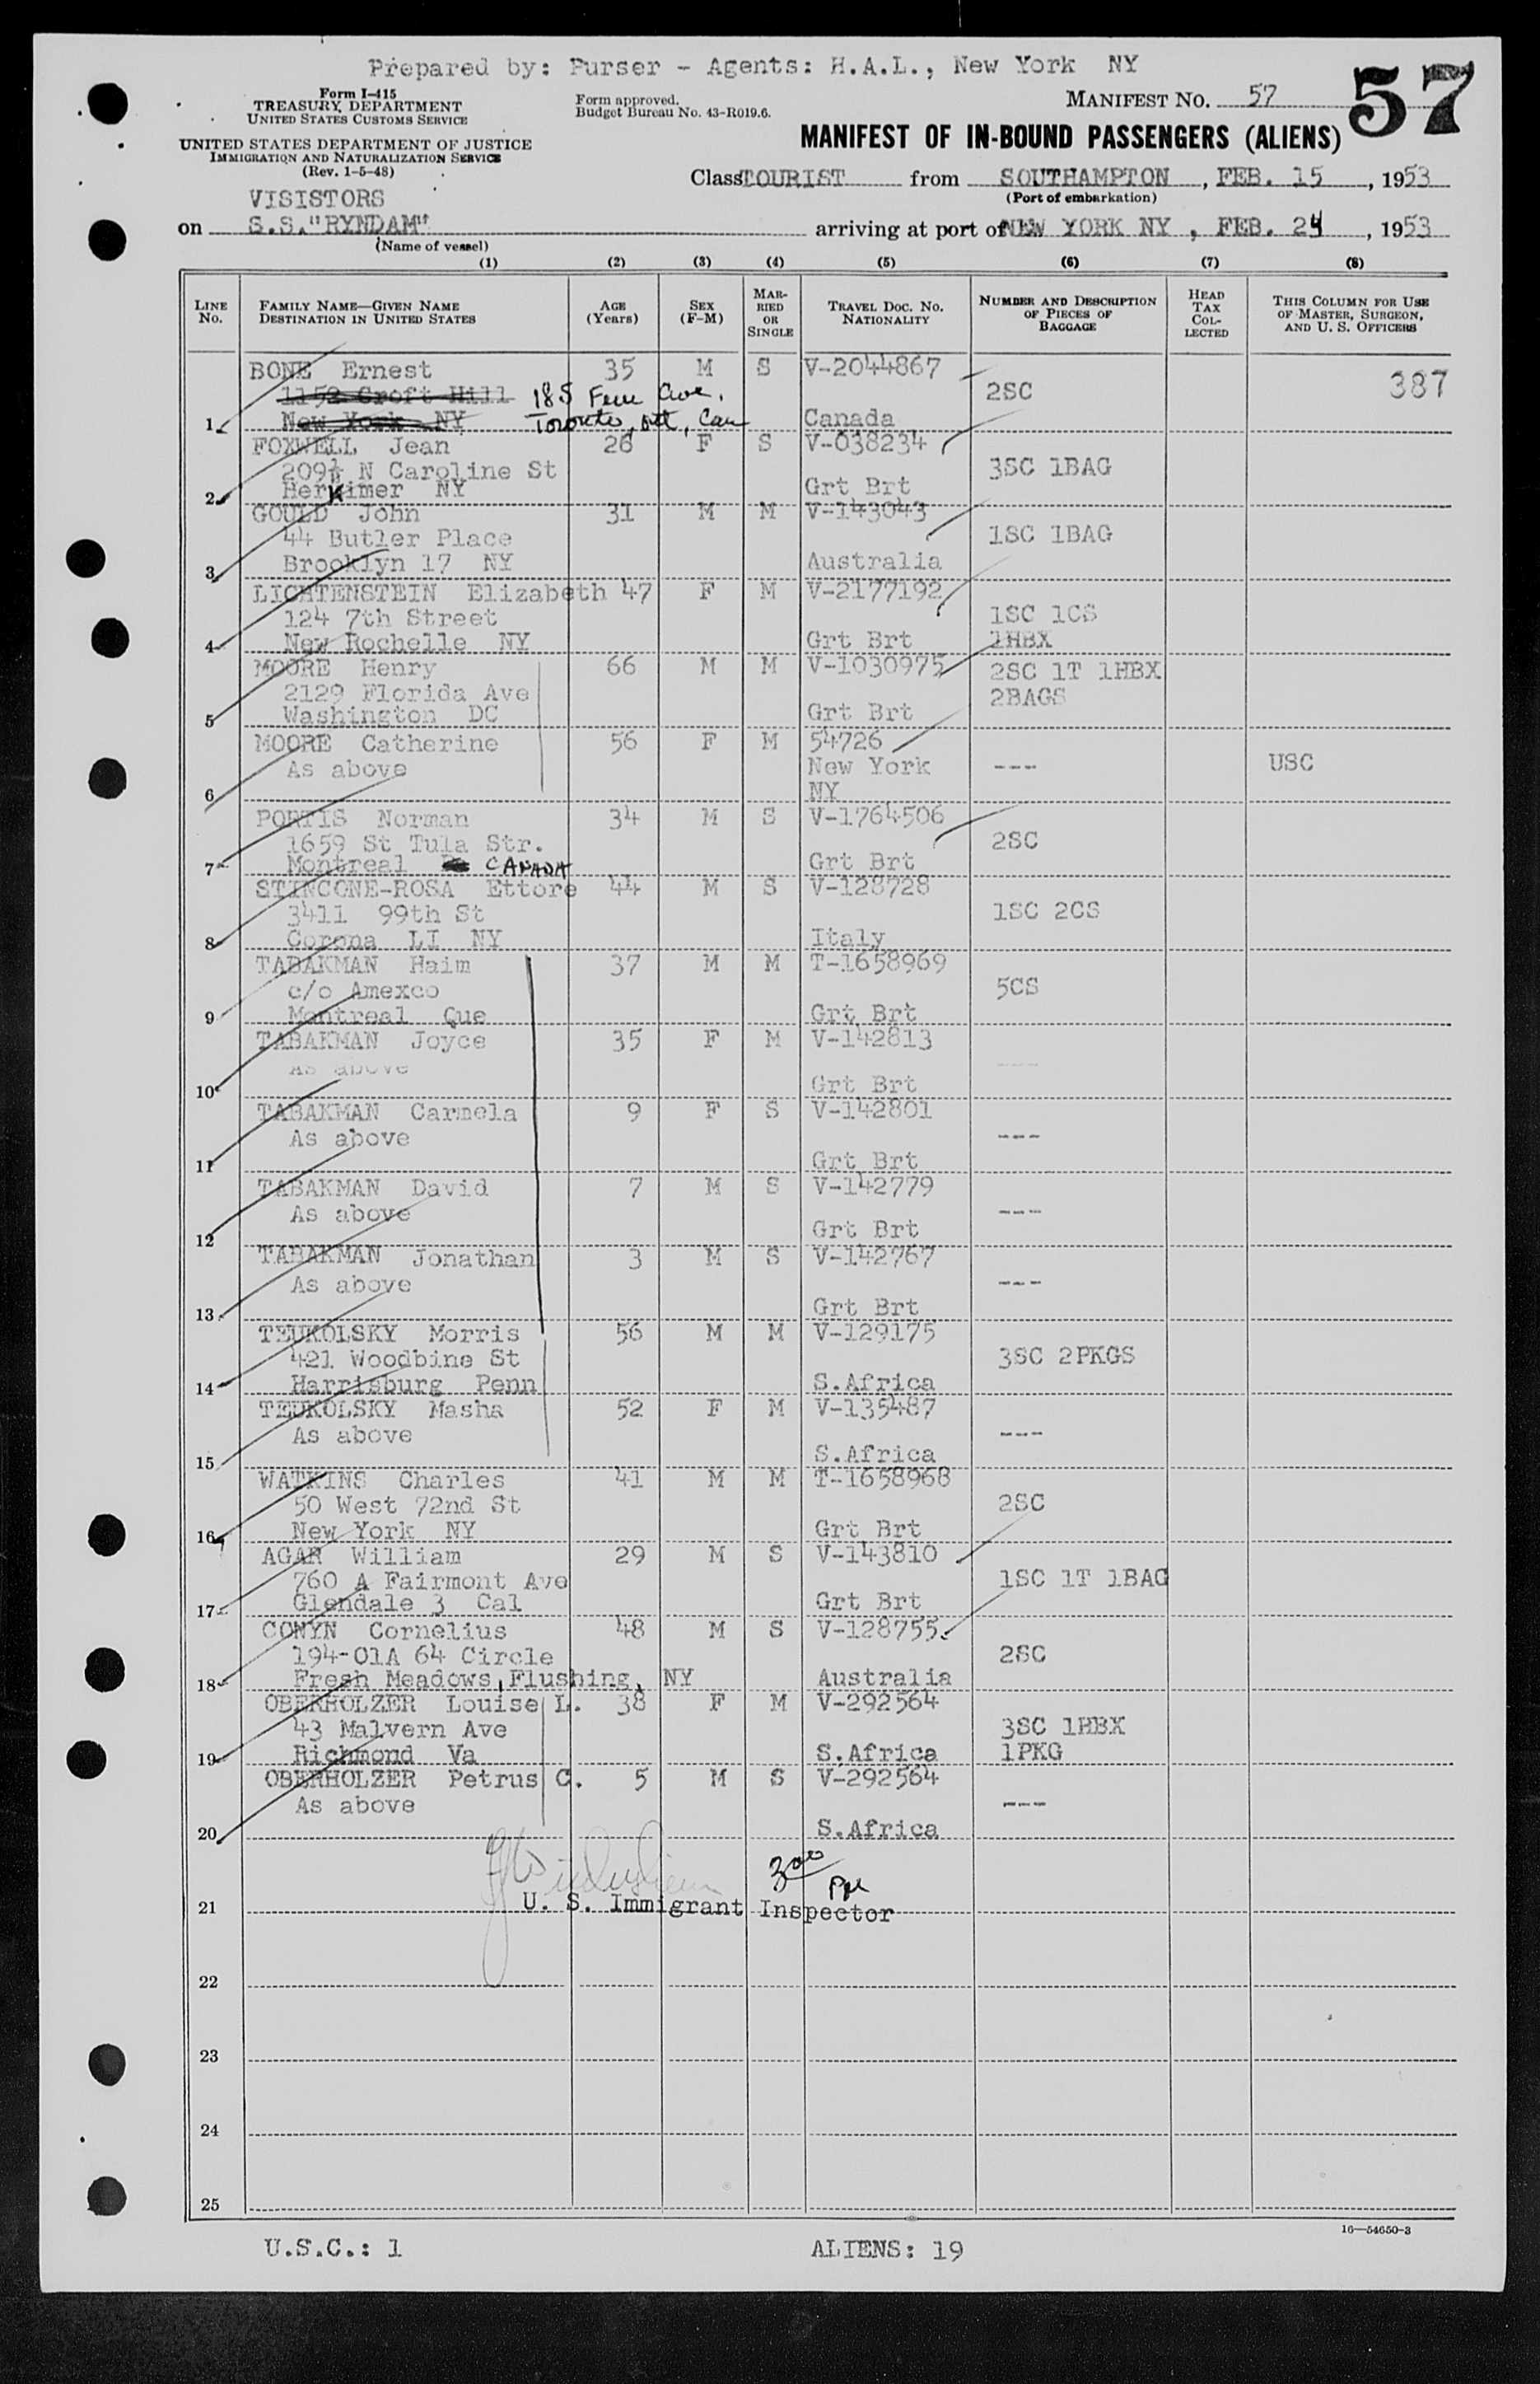 Prepared by: Purser - Agents: H.A.L., New York NY
Form I-415
TREASURY DEPARTMENT
UNITED STATES CUSTOMS SERVICE
Form approved.
Budget Bureau No. 43-R019.6.
MANIFEST NO. 57
57
UNITED STATES DEPARTMENT OF JUSTICE
IMMIGRATION AND NATURALIZATION SERVICE
(Rev. 1-5-48)
MANIFEST OF IN-BOUND PASSENGERS (ALIENS)
Class TOURIST from SOUTHAMPTON, FEB. 15, 1953
(Port of embarkation)
VISISTORS
on S.S."RYNDAM" arriving at port of NEW YORK NY, FEB. 24, 1953
(Name of vessel)
(1) (2) (3) (4) (5) (6) (7) (8)
LINE No. FAMILY NAME—GIVEN NAME DESTINATION IN UNITED STATES AGE (Years) SEX (F-M) MARRIED OR SINGLE TRAVEL DOC. NO. NATIONALITY NUMBER AND DESCRIPTION OF PIECES OF BAGGAGE HEAD TAX COLLECTED THIS COLUMN FOR USE OF MASTER, SURGEON, AND U. S. OFFICERS
BONE Ernest 35 M S V-2044867 387
1152 Croft Hill 185 Ave. 2SC
1 New York NY Toronto, Ont, Can Canada
FOXWELL Jean 26 F S V-038234
209½ N Caroline St 3SC 1BAG
2 Herkimer NY Grt Brt
GOULD John 31 M M V-143043
44 Butler Place 1SC 1BAG
3 Brooklyn 17 NY Australia
LICHTENSTEIN Elizabeth 47 F M V-2177192
124 7th Street 1SC 1CS
4 New Rochelle NY Grt Brt 1HBX
MOORE Henry 66 M M V-1030975 2SC 1T 1HBX
2129 Florida Ave 2BAGS
5 Washington DC Grt Brt
MOORE Catherine 56 F M 54726
As above New York --- USC
6 NY
PORTIS Norman 34 M S V-1764506
1659 St Tula Str. 2SC
7 Montreal CANADA Grt Brt
STINCONE-ROSA Ettore 44 M S V-128728
3411 99th St 1SC 2CS
8 Corona LI NY Italy
TABAKMAN Haim 37 M M T-1658969
c/o Amexco 5CS
9 Montreal Que Grt Brt
TABAKMAN Joyce 35 F M V-142813
As above ---
10 Grt Brt
TABAKMAN Carmela 9 F S V-142801
As above ---
11 Grt Brt
TABAKMAN David 7 M S V-142779
As above ---
12 Grt Brt
TABAKMAN Jonathan 3 M S V-142767
As above ---
13 Grt Brt
TEUKOLSKY Morris 56 M M V-129175
421 Woodbine St 3SC 2PKGS
14 Harrisburg Penn S.Africa
TEUKOLSKY Masha 52 F M V-135487
As above ---
15 S.Africa
WATKINS Charles 41 M M T-1658968
50 West 72nd St 2SC
16 New York NY Grt Brt
AGAR William 29 M S V-143810
760 A Fairmont Ave 1SC 1T 1BAG
17 Glendale 3 Cal Grt Brt
CONYN Cornelius 48 M S V-128755
194-01A 64 Circle 2SC
18 Fresh Meadows, Flushing, NY Australia
OBERHOLZER Louise L. 38 F M V-292564
43 Malvern Ave 3SC 1HBX
19 Richmond Va S.Africa 1PKG
OBERHOLZER Petrus C. 5 M S V-292564
As above ---
20 S.Africa
21 U. S. Immigrant Inspector
22
23
24
25
16—54650-3
U.S.C.: 1 ALIENS: 19